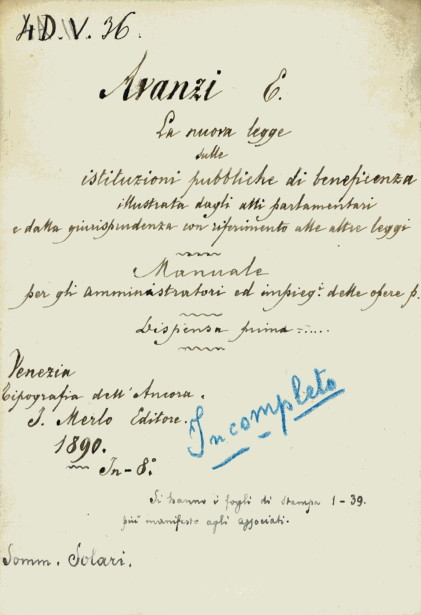 4D.V. 36.
Avanzi E.
La nuova legge
sulle
istituzioni pubbliche di beneficenza
illustrata dagli atti parlamentari
e dalla giurisprudenza con riferimento alle altre leggi
Manuale
per gli amministratori ed impieg.i delle opere p.
Dispensa prima ......
Venezia
Tipografia dell'Ancora.
J. Merlo Editore.
1890.
In-8.°
Incompleto
Si hanno i fogli di stampa 1-39.
più manifesto agli associati.
Somm. Solari.